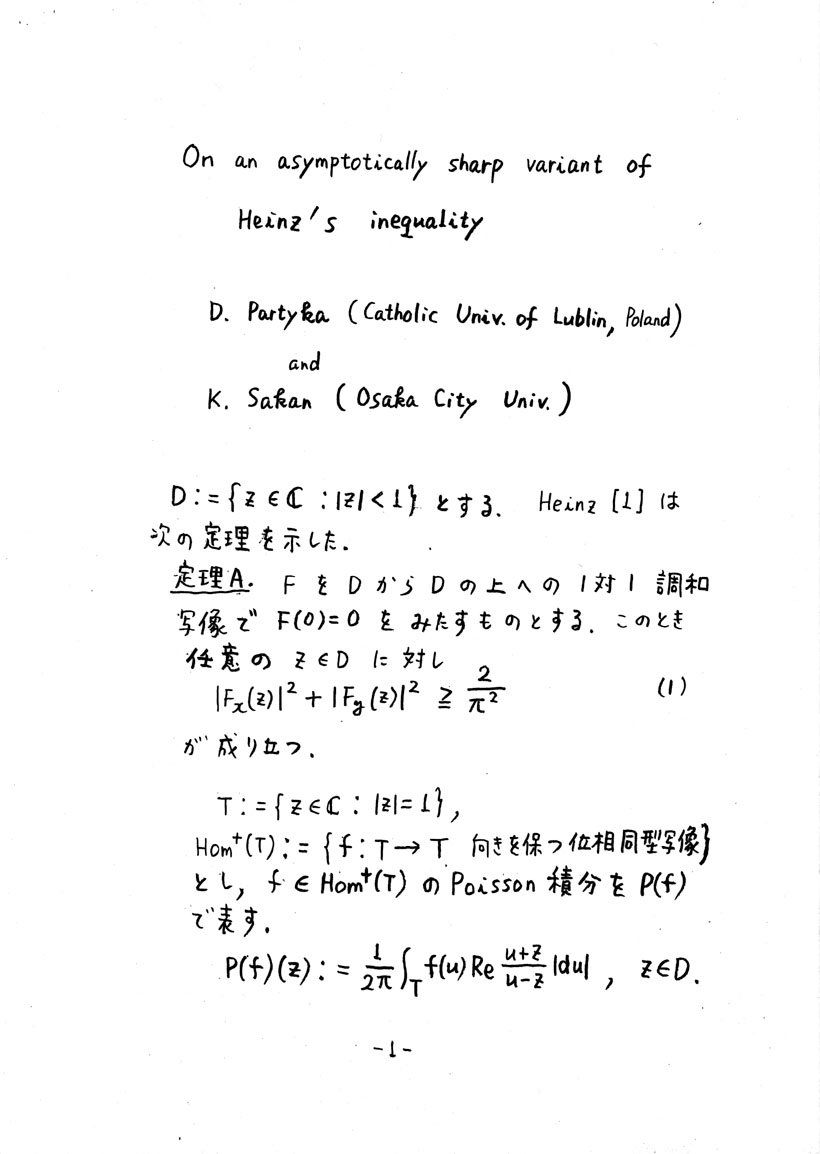 On an asymptotically sharp variant of
Heinz's inequality
D. Partyka (Catholic Univ. of Lublin, Poland)
and
K. Sakan (Osaka City Univ.)
D:={z∈ℂ:|z|<1}とする. Heinz [1] は
次の定理を示した.
定理A. F を D から D の上への 1対1 調和
写像で F(0)=0 をみたすものとする. このとき
任意の z∈D に対し
|F_x(z)|² + |F_y(z)|² ≧ 2/π² (1)
が成り立つ.
T:={z∈ℂ:|z|=1},
Hom⁺(T):={f:T→T 向きを保つ位相同型写像}
とし, f∈Hom⁺(T) の Poisson 積分を P(f)
で表す.
P(f)(z):=1/2π ∫_T f(u) Re (u+z)/(u-z) |du|, z∈D.
-1-